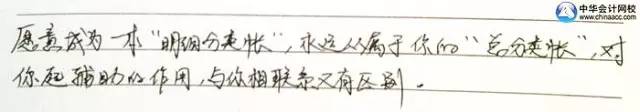 中华会计网校
www.chinaacc.com
愿意成为一本“明细分类账”，永远从属于你的“总分类账”，对
你起辅助的作用，与你相联系又有区别。